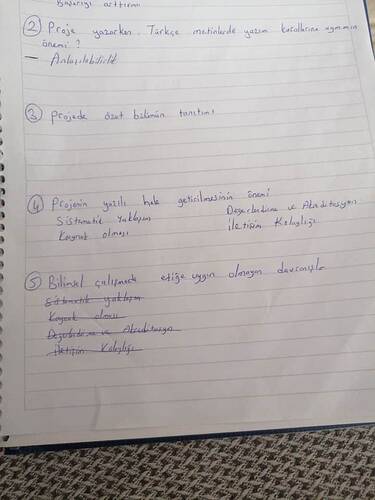 Başarıyı arttırma
② Proje yazarken, Türkçe metinlerde yazım kurallarına uymanın
önemi ?
— Anlaşılabilirlik
③ Projede özet bölümün tanıtımı
④ Projenin yazılı hale getirilmesinin önemi
Sistematik yaklaşım
Değerlendirme ve Akreditasyon
Kaynak olması
İletişim Kolaylığı
⑤ Bilimsel çalışmada etiğe uygun olmayan davranışlar
Sistematik yaklaşım
Kaynak olması
Değerlendirme ve Akreditasyon
İletişim Kolaylığı